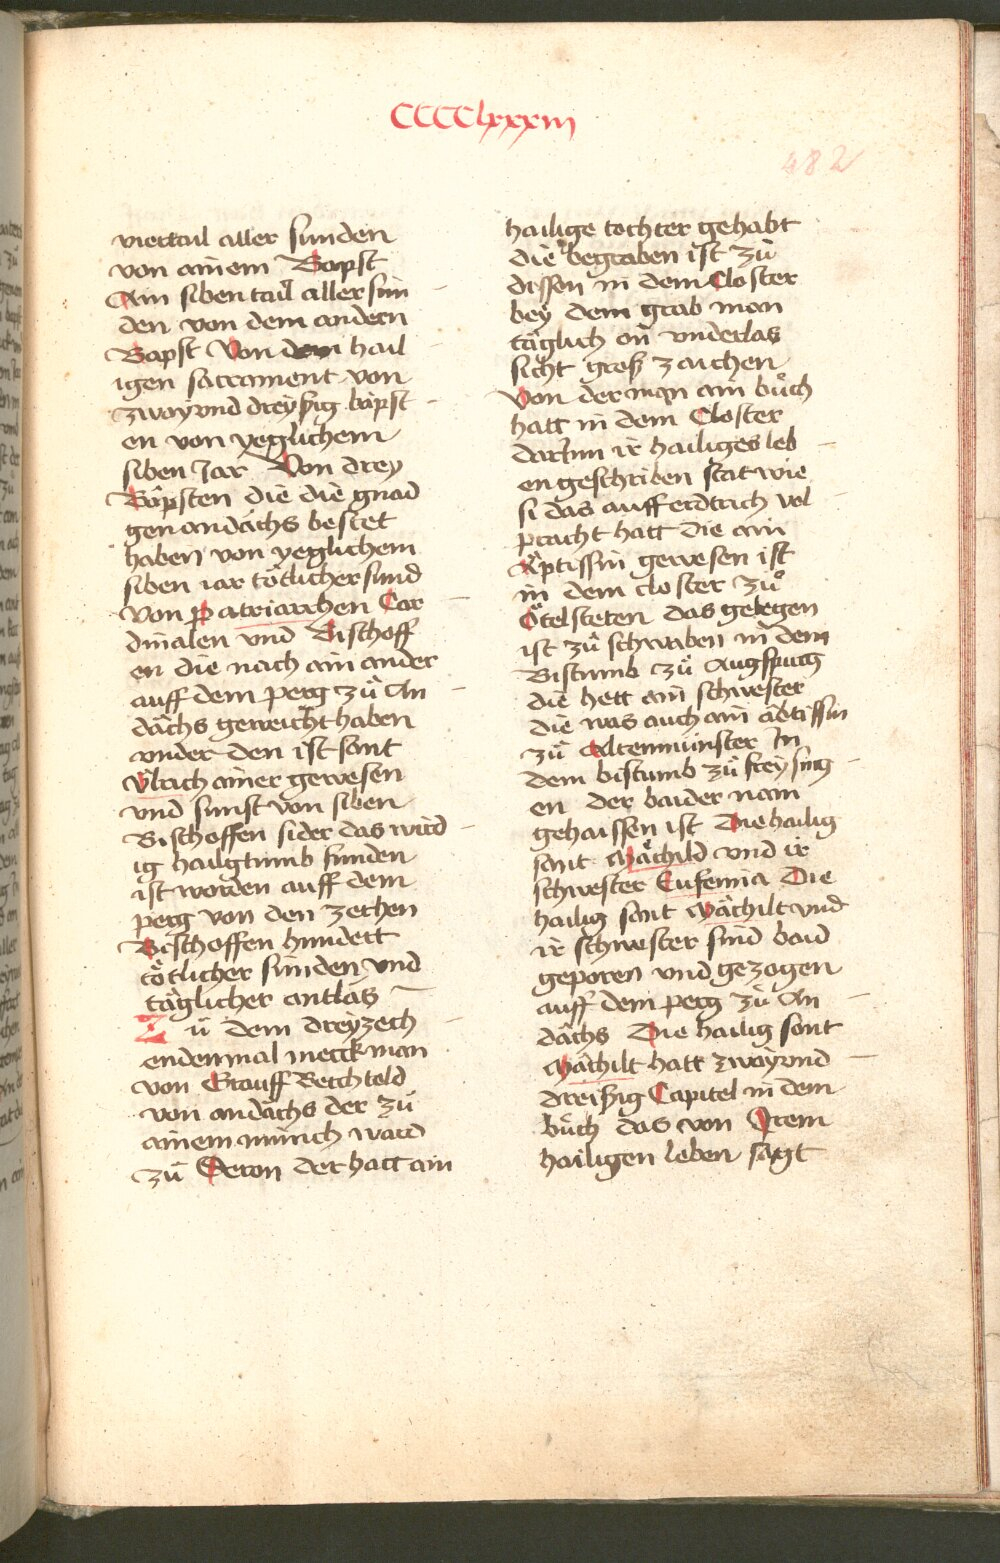 CCCClxxxiij
482
viertail aller sunden
von ainem Bapst
Ain sibentail aller sün
den von dem andern
Bapst Von dem hail
igen sacrament von
zwayvnd dreyssig bäpst
en von yeglichem
siben Jar Von drey
Bäpsten die die gnad
gen andächs bestet
haben von yeglichem
siben iar tötlicher sund
von Patriarchen Car
dinalen vnd Bischoff
en die nach ain ander
auff dem perg zů An
dächs geweicht haben
vnder den ist sant
Ulrich ainer gewesen
vnd sunst von siben
Bischoffen sider das wird
ig hailgtumb funden
ist worden auff dem
perg von den zechen
Bischoffen hundert
tötlicher sünden vnd
täglicher antlas
Zů dem dreyzech
endenmal merck man
von Grauff Berchtold
von andächs der zů
ainem münich ward
zů Seron der hatt ain
hailige tochter gehabt
die begraben ist zů
dissen in dem Closter
bey dem grab man
täglich on vnderlas
sicht groß zaichen
Von der man ain bůch
hatt in dem Closter
darInn ir hailiges leb
en geschriben stat wie
si das auff erdtrich vol
pracht hatt die ain
Äptissin gewesen ist
in dem closter zů
Ötelsteten das gelegen
ist zů schwaben in dem
Bistumb zů Augspurg
die hett ain schwester
die was auch ain äbtissin
zů Altenmünster In
dem bistumb zů freysing
en der baider nam
gehaissen ist Die hailig
sant Mächild vnd ir
schwester Eufemia Die
hailig sant Mächilt vnd
ir schwester sind baid
geporen vnd gezogen
auff dem perg zů An
dächs Die hailig sant
Mächilt hatt zwayvnd
dreissig Capitel in dem
bůch das von Irem
hailigen leben sagt